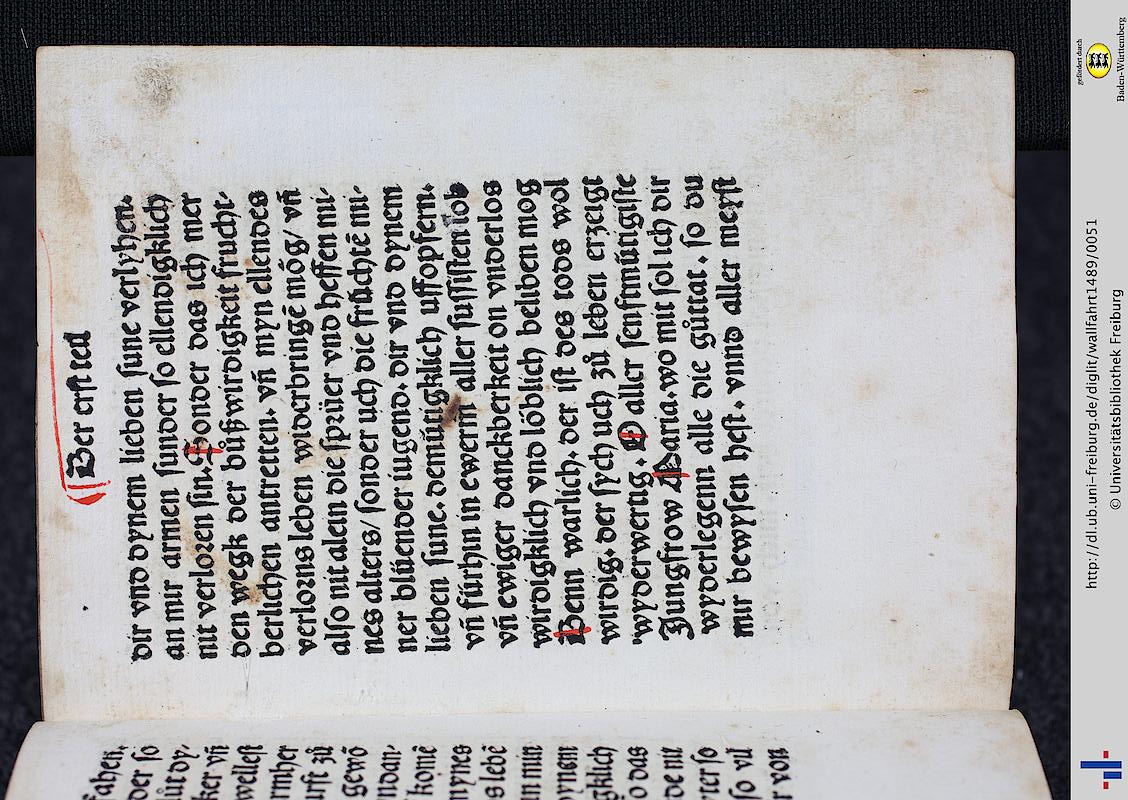 Der erst teil
dir vnd dynem lieben sune verlyhen.
an mir armen sunder so ellendigklich
nit verloren sin. Sonder das ich mer
den wegk der bůßwirdigkeit frucht-
berlichen antretten. vñ myn ellendes
verlorns leben widerbringē mög/ vñ
also nit alein die sprüer vnd heffen mi-
nes alters/ sonder uch die früchtē mi-
ner blüender iugend. dir vnd dynem
lieben sune. demütigklich uffopfern.
vñ fürhin in ewerm aller süssisten lob
vñ ewiger danckberkeit on vnderlos
wirdigklich vnd löblich beliben mog
Denn warlich. der ist des tods wol
wirdig. der sych uch zů leben erzeigt
wyderwertig. O aller senftmütigiste
Jungfrow Maria. wo mit sol ich dir
wyderlegenn alle die gůttat. so du
mir bewysen hest. vnnd aller meyst
fahen,
der so
ker vñ
wellest
gewō
komē
mynes
s lebē
in min
dynem
gklich
o das
de nit
so vil
r von
gefördert durch
Baden-Württemberg
http://dl.ub.uni-freiburg.de/diglit/wallfahrt1489/0051
© Universitätsbibliothek Freiburg